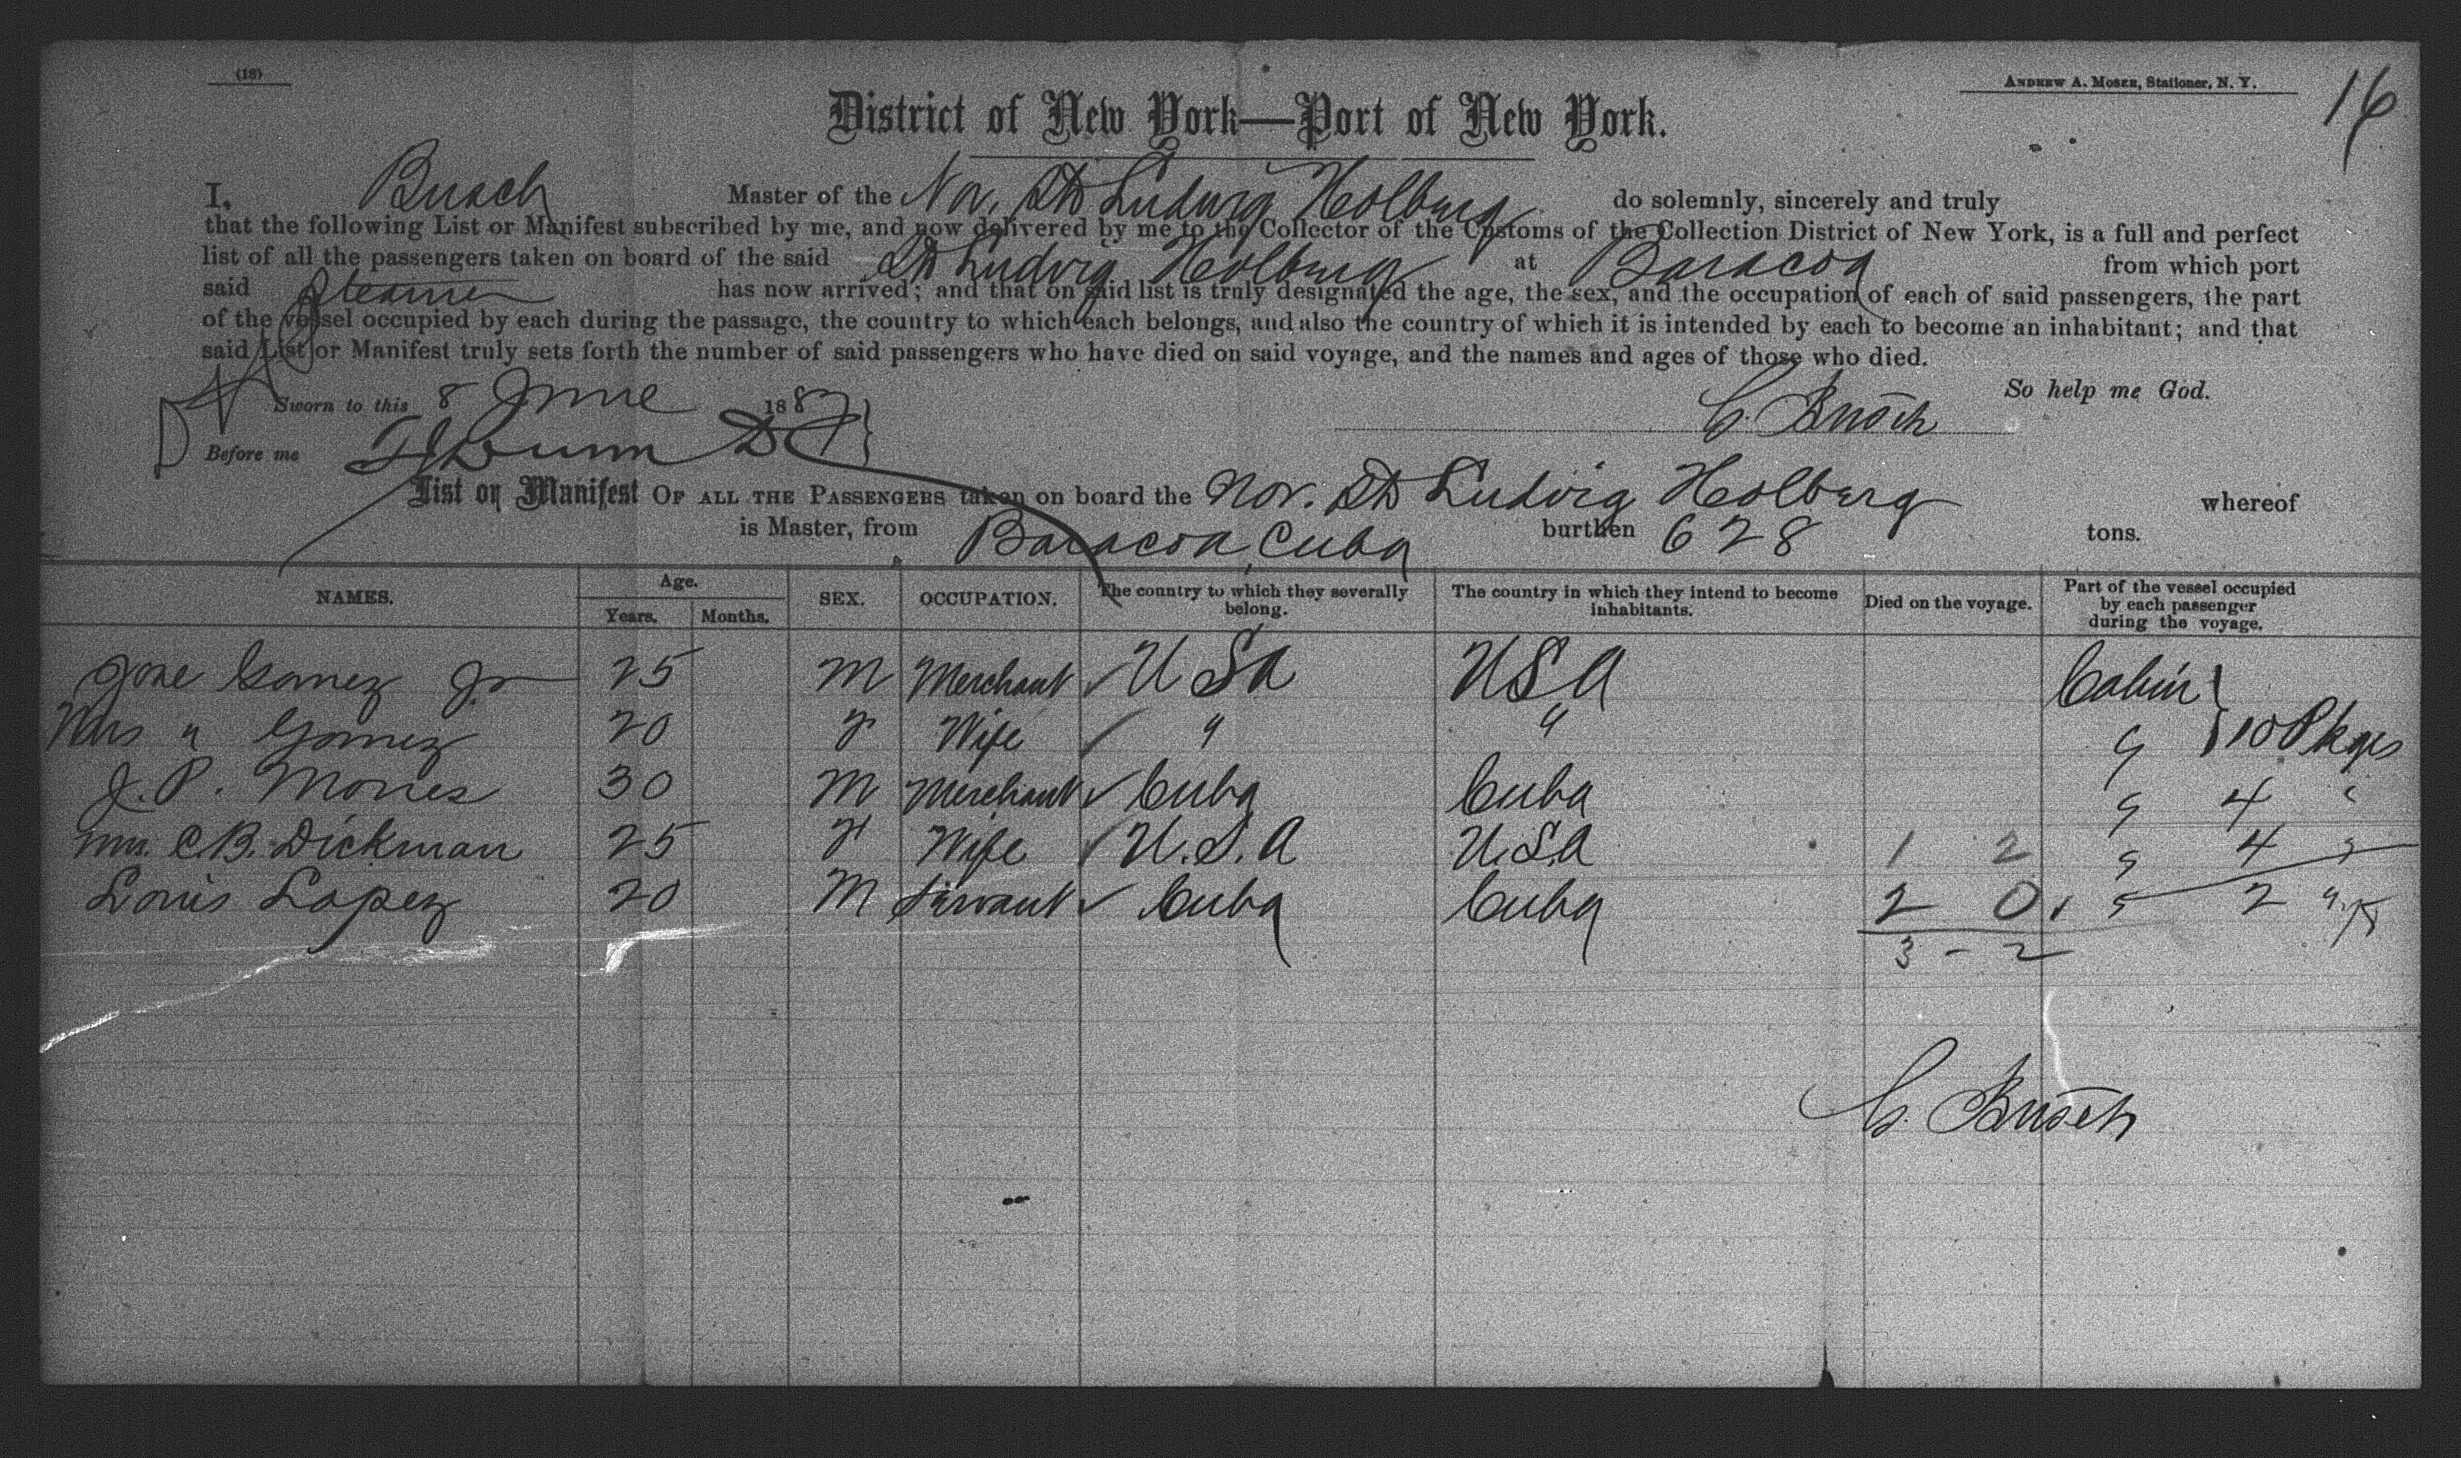 (18)
ANDREW A. MOSER, Stationer, N. Y.
16
District of New York—Port of New York.
I, Busch Master of the Nor. SS Ludwig Holberg do solemnly, sincerely and truly
that the following List or Manifest subscribed by me, and now delivered by me to the Collector of the Customs of the Collection District of New York, is a full and perfect
list of all the passengers taken on board of the said SS Ludvig Holberg at Baracoa from which port
said Steamer has now arrived; and that on said list is truly designated the age, the sex, and the occupation of each of said passengers, the part
of the vessel occupied by each during the passage, the country to which each belongs, and also the country of which it is intended by each to become an inhabitant; and that
said List or Manifest truly sets forth the number of said passengers who have died on said voyage, and the names and ages of those who died.
So help me God.
Sworn to this 8 June 1887
C. Busch
Before me Dunn
List or Manifest OF ALL THE PASSENGERS taken on board the Nor. SS Ludvig Holberg whereof
is Master, from Baracoa, Cuba burthen 628 tons.
NAMES. Age. Years. Months. SEX. OCCUPATION. The country to which they severally belong. The country in which they intend to become inhabitants. Died on the voyage. Part of the vessel occupied by each passenger during the voyage.
Jose Gomez Jr 25 M Merchant USA USA Cabin
Mrs " Gomez 20 F Wife " " " 10 Pkges
J. P. Mones 30 M Merchant Cuba Cuba " 4 "
Mrs. C.B. Dickman 25 F Wife U.S.A U.S.A 1 2 " 4 "
Louis Lopez 20 M Servant Cuba Cuba 2 0 " 2 "
3 - 2
C. Busch